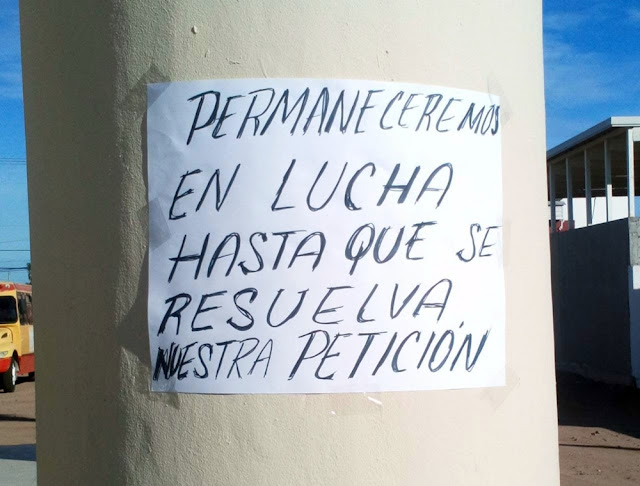 PERMANECEREMOS
EN LUCHA
HASTA QUE SE
RESUELVA
NUESTRA PETICIÓN